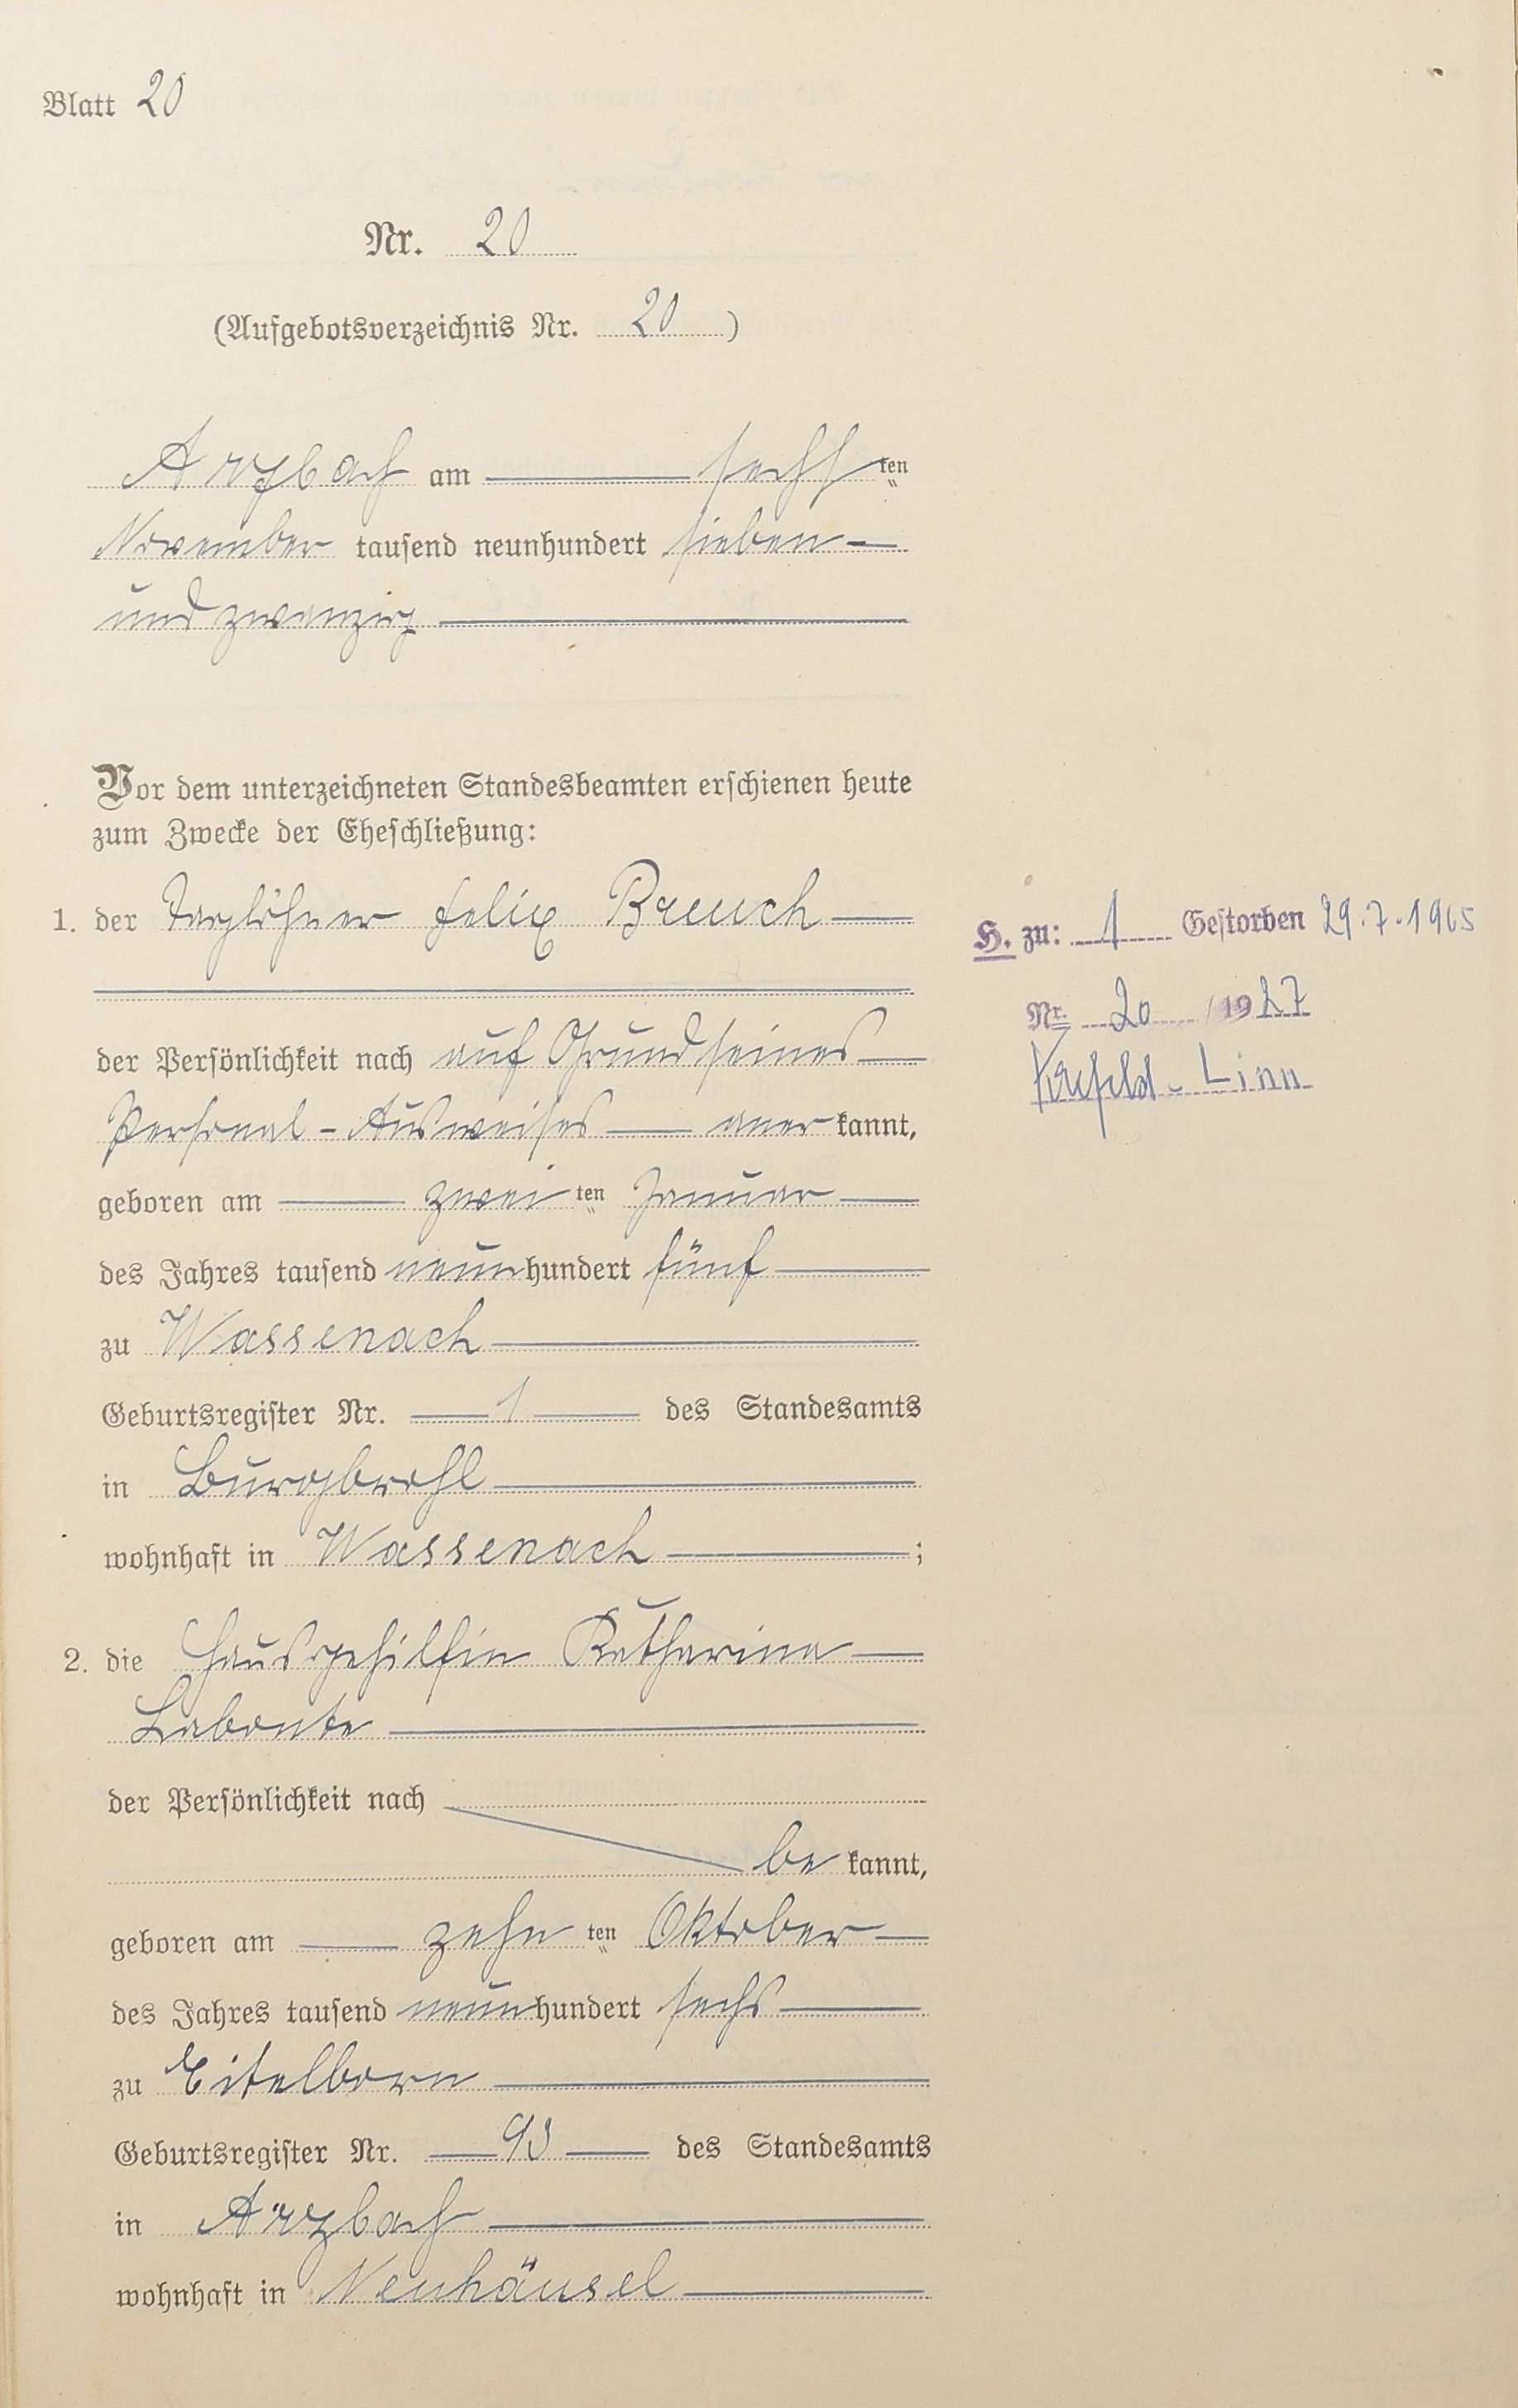 Blatt 20
Nr. 20
(Aufgebotsverzeichnis Nr. 20)
Arzbach am sechsten
November tausend neunhundert sieben-
und zwanzig
Vor dem unterzeichneten Standesbeamten erschienen heute
zum Zwecke der Eheschließung:
1. der Taglöhner Felix Breuch
der Persönlichkeit nach auf Grund seines
Personal-Ausweises anerkannt,
geboren am zweiten Januar
des Jahres tausend neunhundert fünf
zu Wassenach
Geburtsregister Nr. 1 des Standesamts
in Burgbrohl
wohnhaft in Wassenach;
2. die Hausgehilfin Katharina
Labonte
der Persönlichkeit nach
bekannt,
geboren am zehnten Oktober
des Jahres tausend neunhundert sechs
zu Eitelborn
Geburtsregister Nr. 93 des Standesamts
in Arzbach
wohnhaft in Neuhäusel
H. zu: 1 Gestorben 29.7.1965
Nr. 20 /1927
Krefeld-Linn